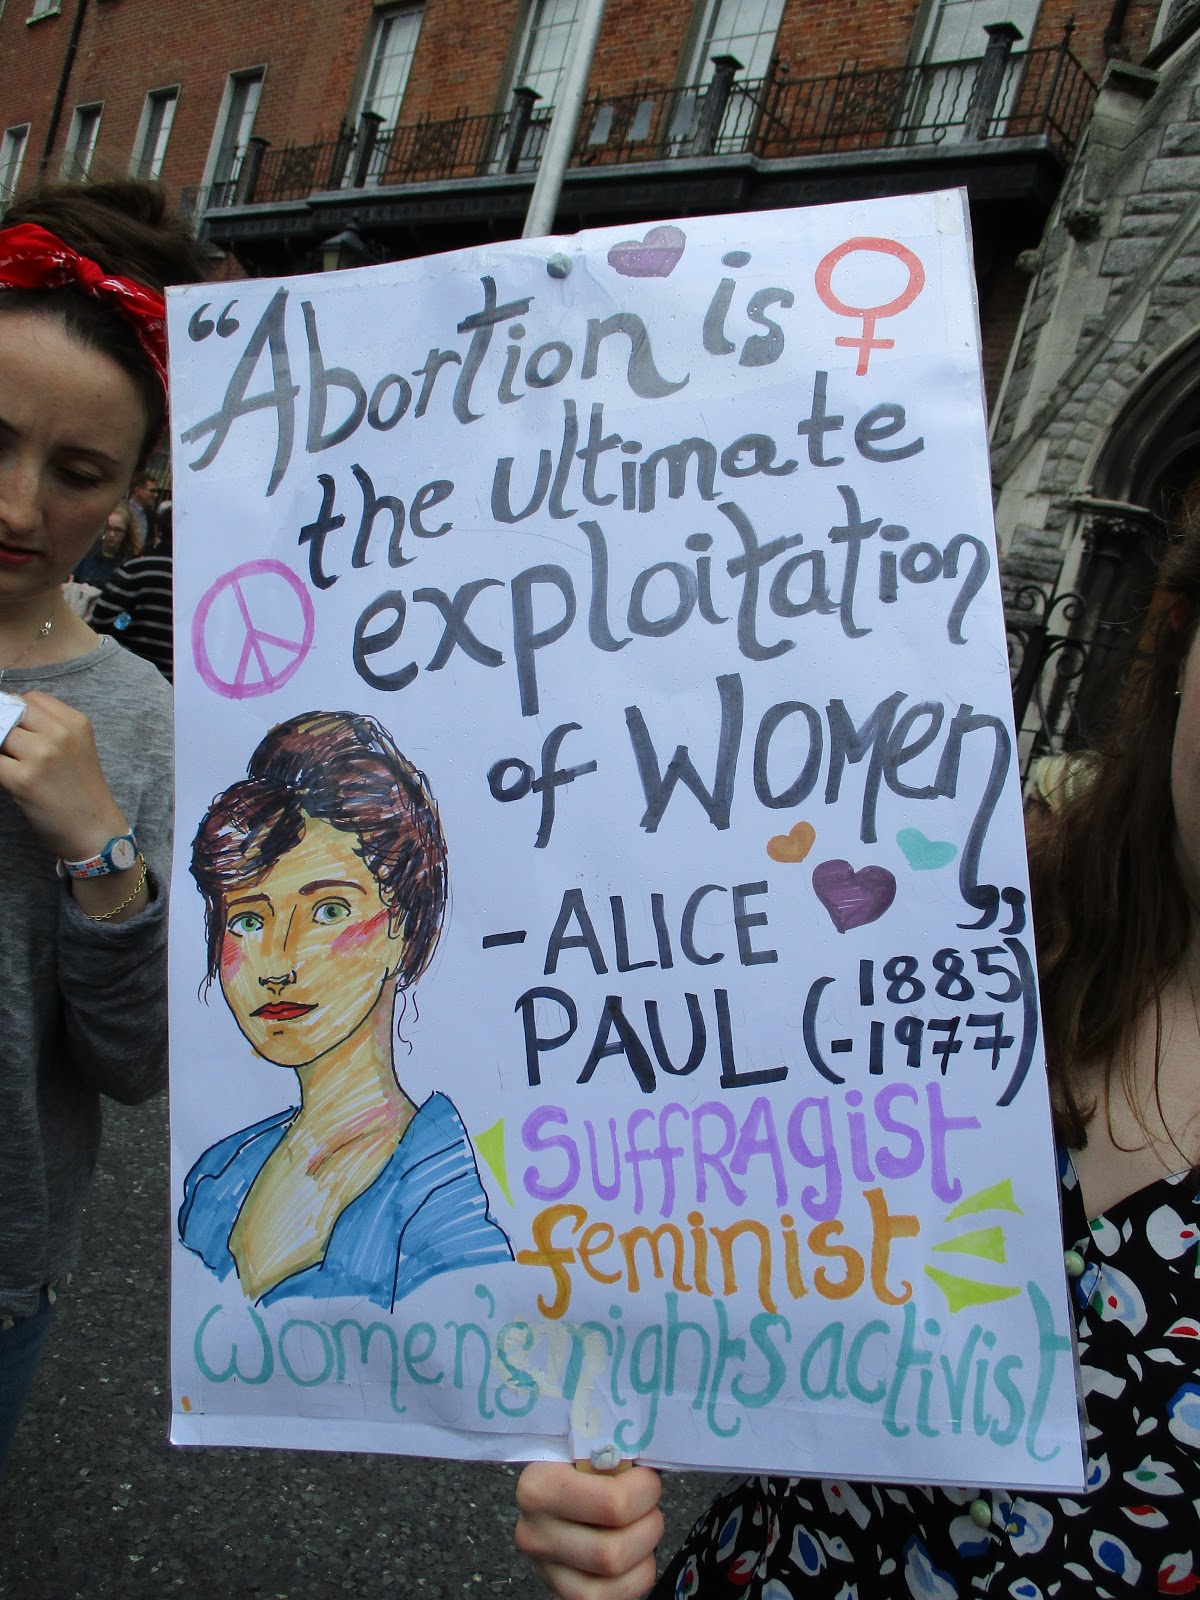 “Abortion is
the ultimate
exploitation
of Women”
- ALICE
PAUL (1885
-1977)
SUffRAgiSt
feminist
women's rights activist